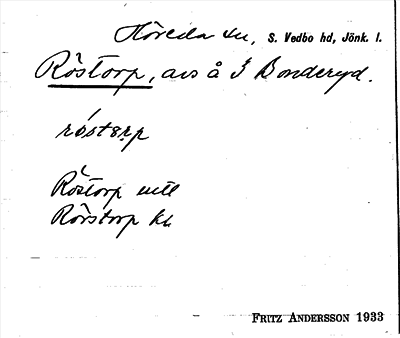 Höreda sn, S. Vedbo hd, Jönk. l.
Röstorp, avs å 3 Bonderyd.
röstærp
Röstorp
Rörstorp kk
FRITZ ANDERSSON 1933